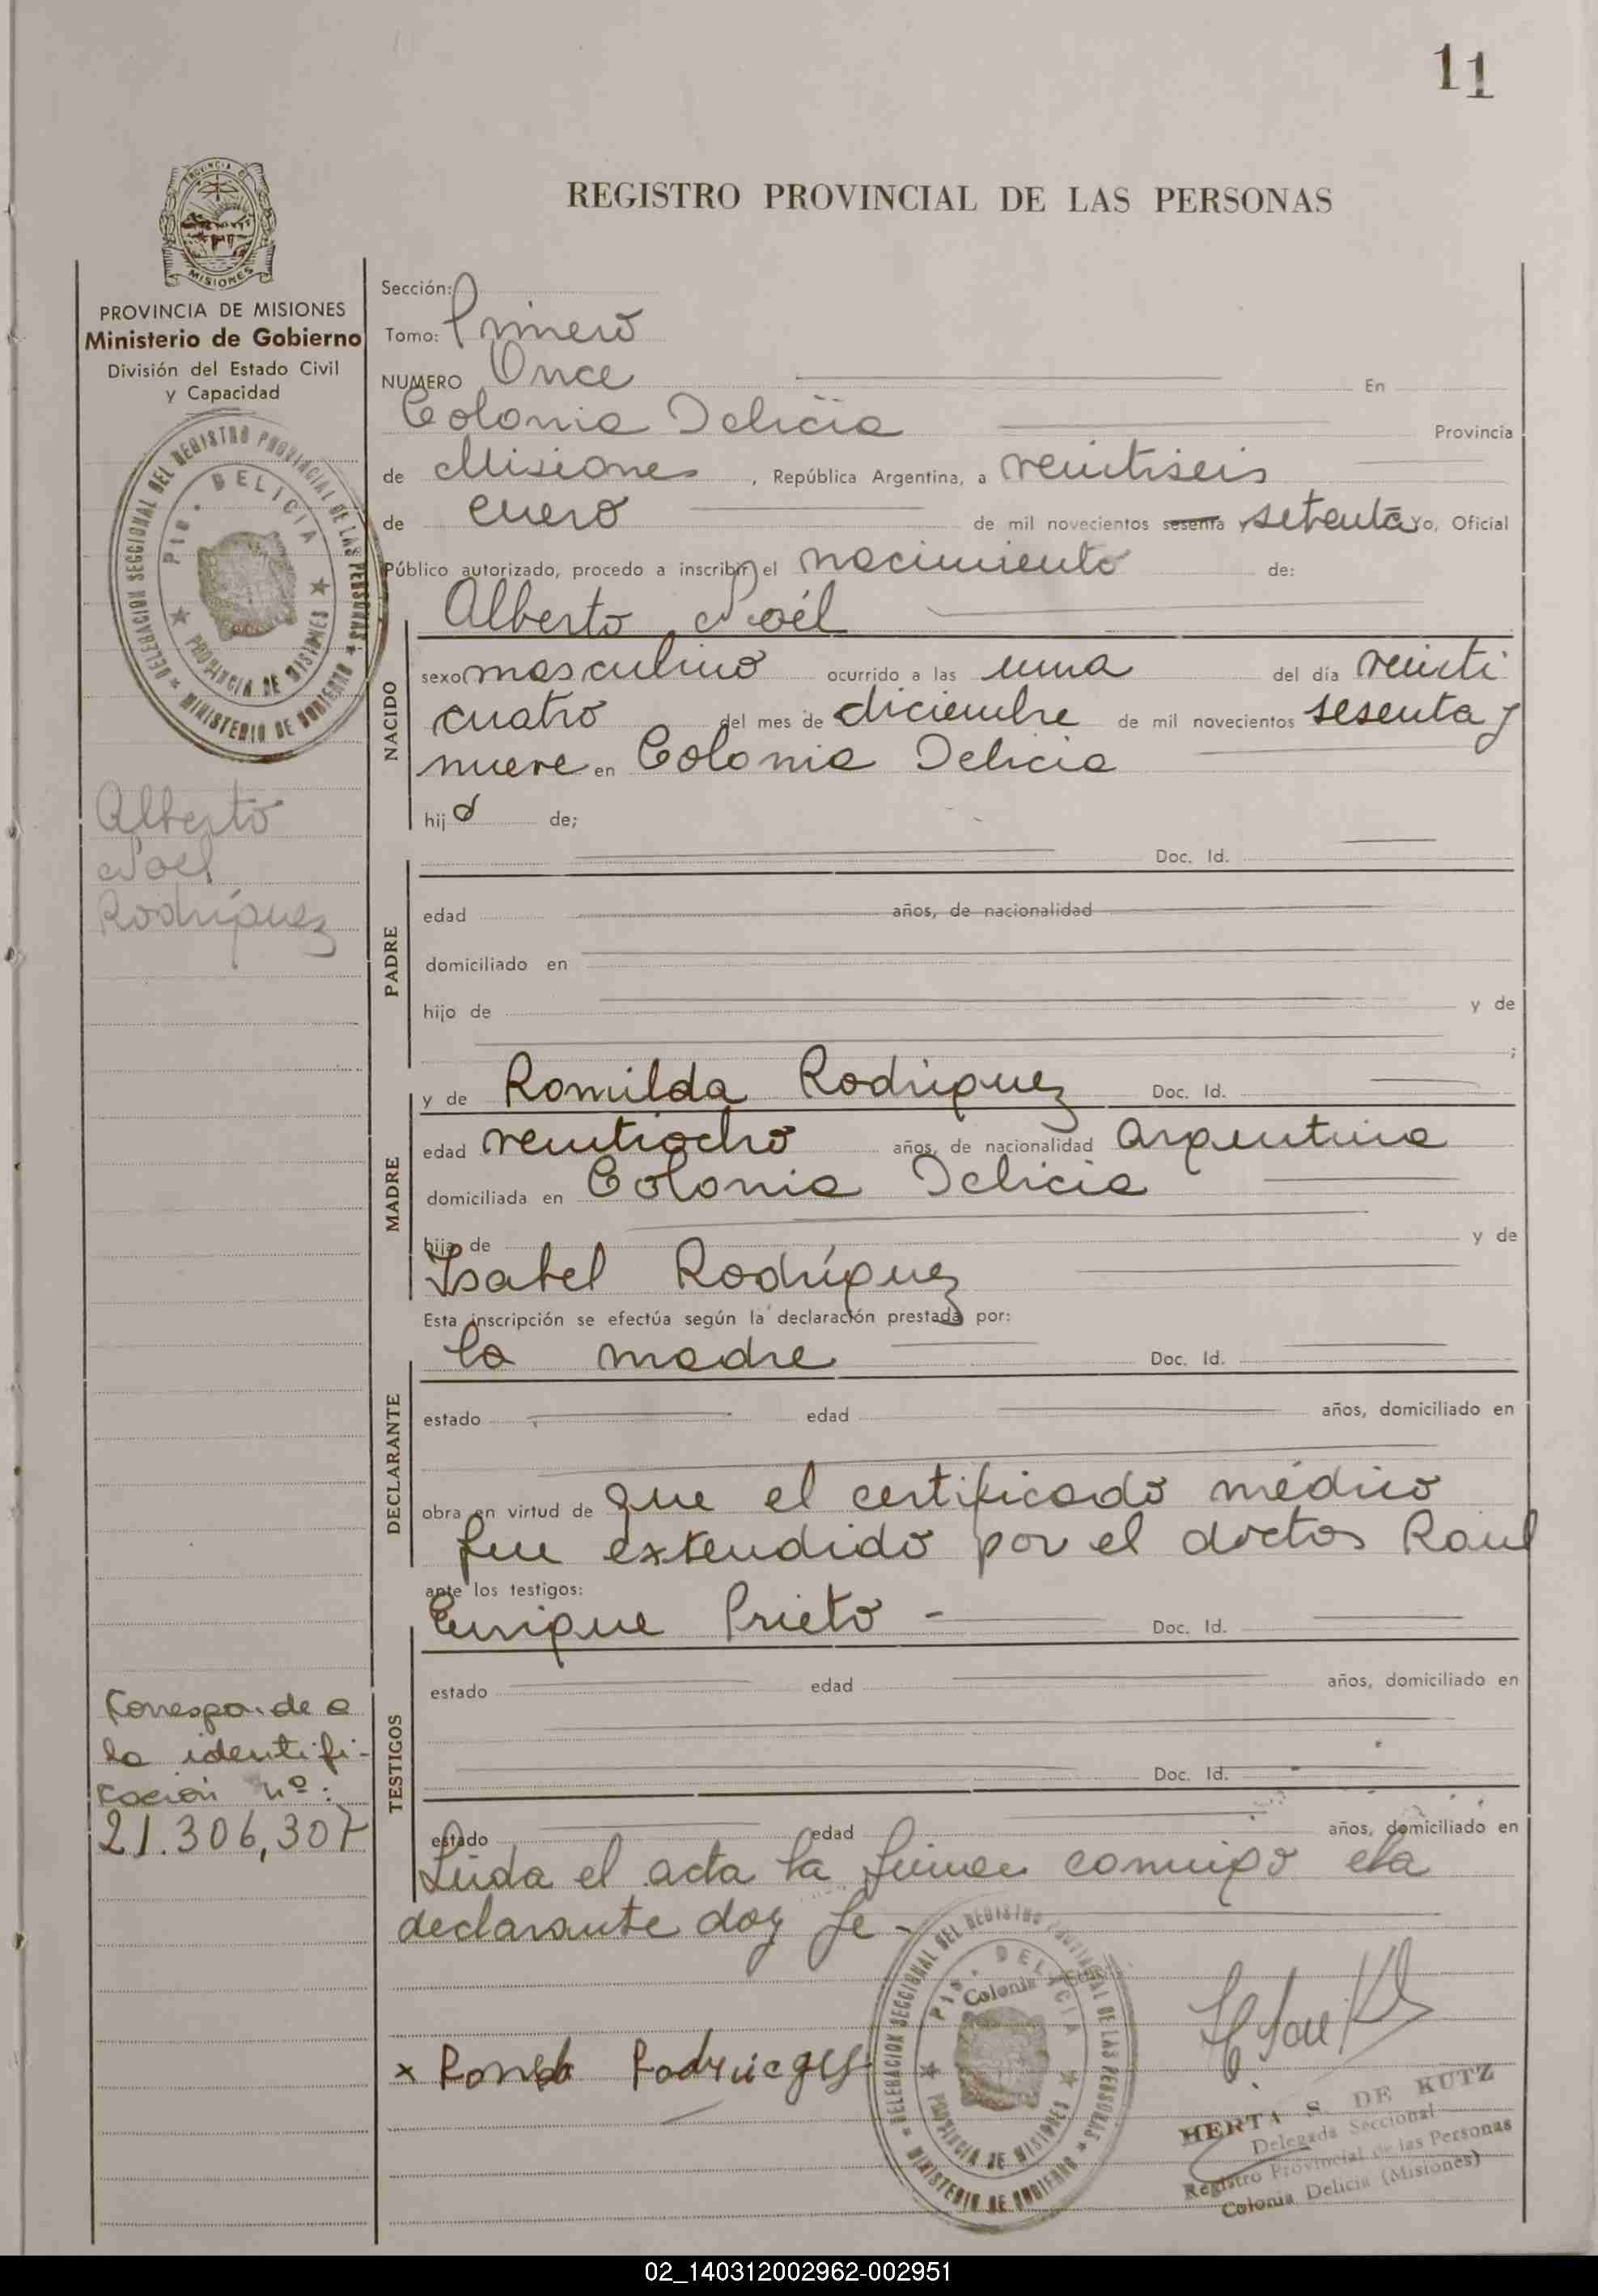 11
REGISTRO PROVINCIAL DE LAS PERSONAS
PROVINCIA DE
MISIONES
PROVINCIA DE MISIONES
Ministerio de Gobierno
División del Estado Civil
y Capacidad
DELEGACION SECCIONAL DEL REGISTRO PROVINCIAL DE LAS PERSONAS
MINISTERIO DE GOBIERNO
DELICIA
PROVINCIA DE MISIONES
Alberto
Noel
Rodríguez
Corresponde a
la identifi-
cación nº:
21.306,307
Sección:
Tomo: Primero
NUMERO Once En
Colonia Delicia Provincia
de Misiones, República Argentina, a veintiseis
de enero de mil novecientos sesenta setenta Yo, Oficial
Público autorizado, procedo a inscribir el nacimiento de:
Alberto Noél
NACIDO
sexo masculino ocurrido a las una del día veinti
cuatro del mes de diciembre de mil novecientos sesenta y
nueve en Colonia Delicia
hijo de;
Doc. Id.
PADRE
edad años, de nacionalidad
domiciliado en
hijo de y de
;
y de Romilda Rodríguez Doc. Id.
MADRE
edad veintiocho años, de nacionalidad Argentina
domiciliada en Colonia Delicia
hija de y de
Isabel Rodríguez
Esta inscripción se efectúa según la declaración prestada por:
la madre Doc. Id.
DECLARANTE
estado edad años, domiciliado en
obra en virtud de que el certificado médico
fue extendido por el doctor Raul
ante los testigos:
Enrique Prieto - Doc. Id.
TESTIGOS
estado edad años, domiciliado en
Doc. Id.
estado edad años, domiciliado en
Leida el acta la firma conmigo la
declarante doy fe -
DELEGACION SECCIONAL DEL REGISTRO PROVINCIAL DE LAS PERSONAS
MINISTERIO DE GOBIERNO
DELICIA
Colonia
PROVINCIA DE MISIONES
x
HERTA S. DE KUTZ
Delegada Seccional
Registro Provincial de las Personas
Colonia Delicia (Misiones)
02_140312002962-002951